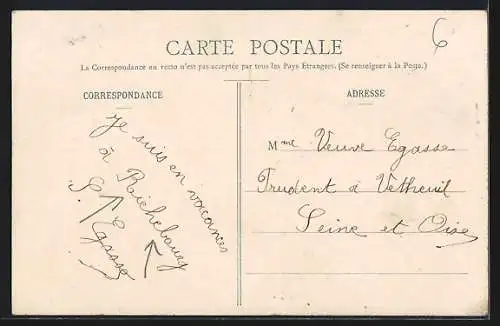 6
CARTE POSTALE
La Correspondance au verso n'est pas acceptée par tous les Pays Etrangers. (Se renseigner à la Poste.)
CORRESPONDANCE
Je suis en vacances
à Richebourg
S. Egasse
ADRESSE
Mme Veuve Egasse
Prudent à Vetheuil
Seine et Oise